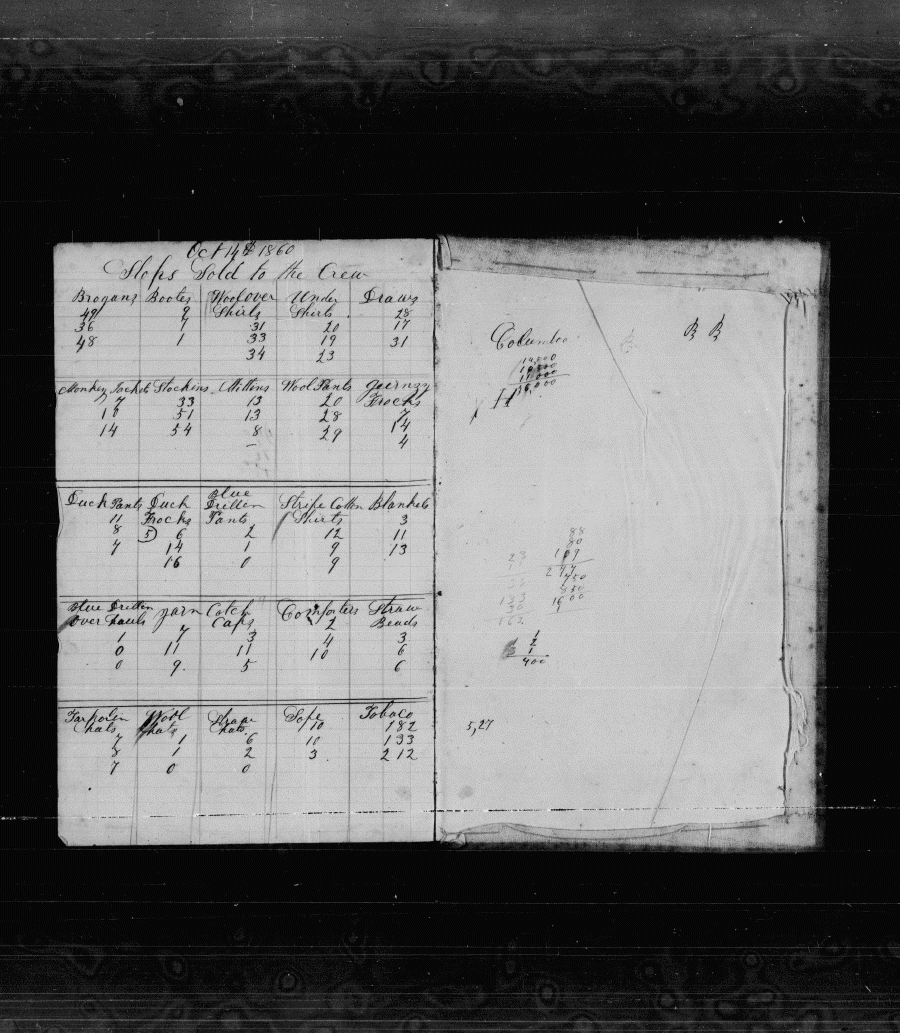 Oct 14th 1860
Slops Sold to the Crew
Brogans Bootes Woolover Under Draws
Shirts Shirts
49 9 31 20 28
36 7 33 19 17
48 1 34 23 31
Monkey Jackets Stockins Mittens Wool Pants guernzy
Frocks
7 33 13 20 7
10 51 13 28 14
14 54 8 29 4
Duck Pants Duck Blue Stripe Cotton Blankets
Frocks Drillen Shirts
Pants
11 (5) 6 2 12 3
8 14 1 9 11
7 16 0 9 13
Blue Drillen yarn Cotch Comforters Straw
Over hauls Caps Beads
1 7 3 2 3
0 11 11 4 6
0 9. 5 10 6
Tarpolin Wool Sope Tobaco
hats hats hats
7 1 6 10 182
8 1 2 10 133
7 0 0 3 212
Columboo
14,000
11,000
B B
23
133
30
163
88
80
109
277
750
850
1600
1
2
1
400
5,27